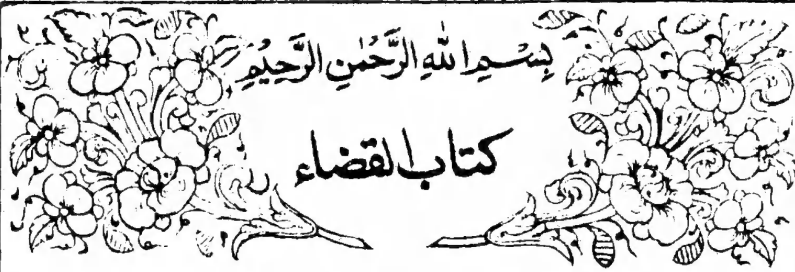 بِسْمِ اللهِ الرَّحْمٰنِ الرَّحِيْمِ
كتاب القضاء